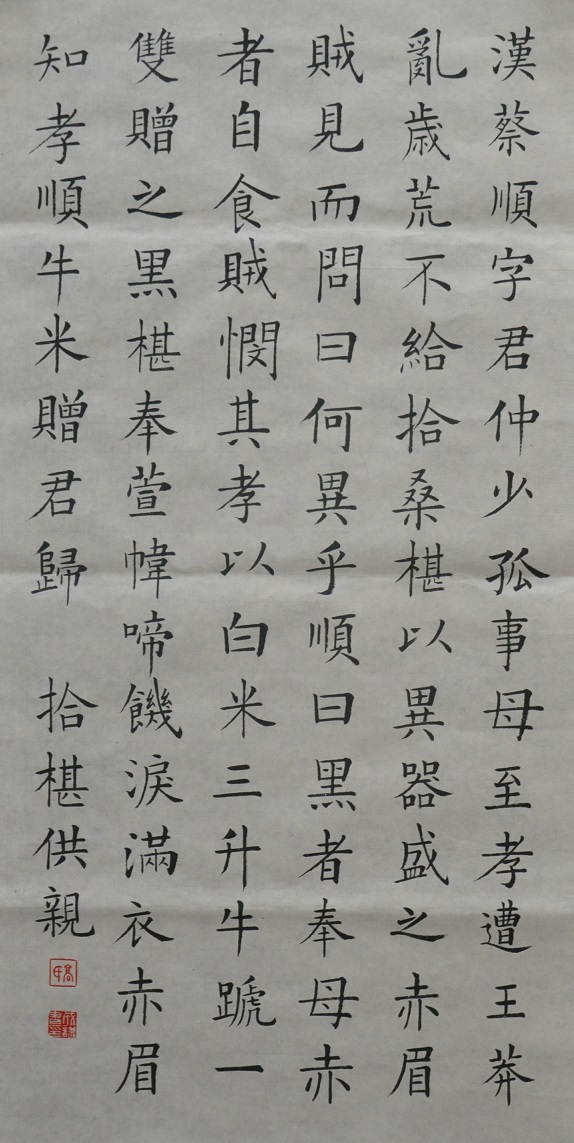 漢蔡順字君仲少孤事母至孝遭王莽
亂歳荒不給拾桑椹以異器盛之赤眉
賊見而問曰何異乎順曰黑者奉母赤
者自食賊憫其孝以白米三升牛蹏一
雙贈之黒椹奉萱幃啼饑淚滿衣赤眉
知孝順牛米贈君歸 拾椹供親